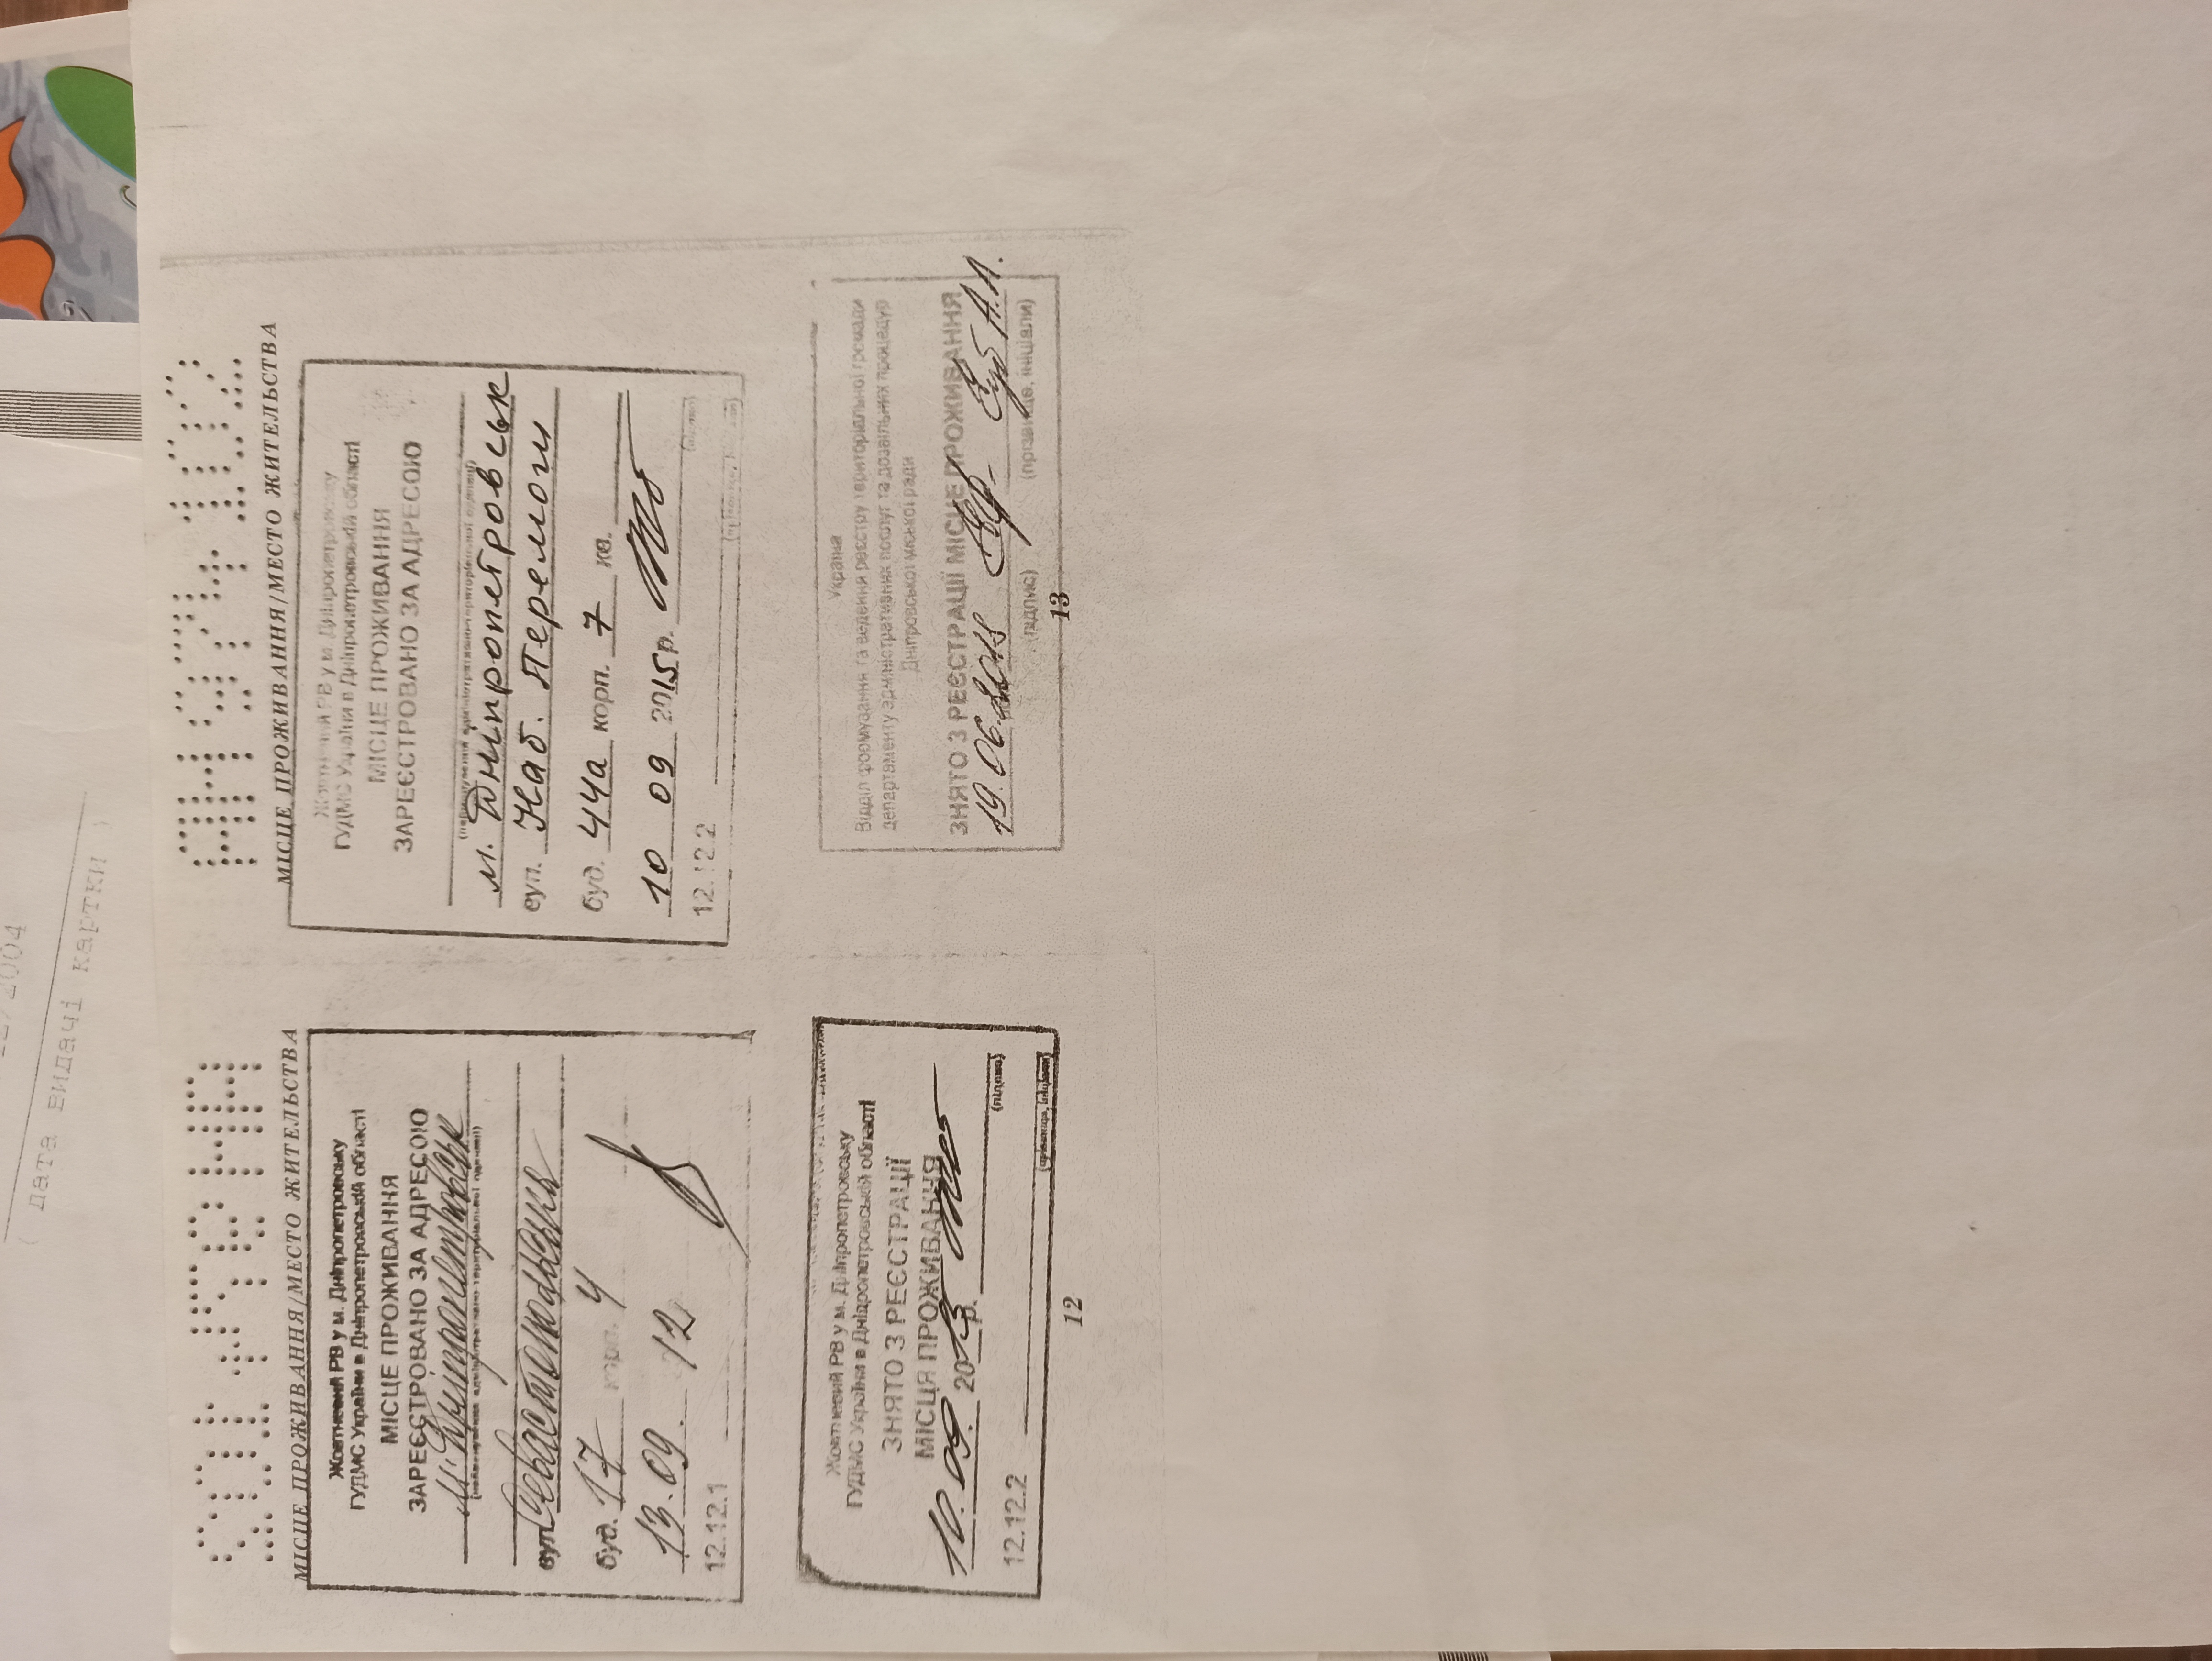 2004
( дата видачі картки )
АН 974102
МІСЦЕ ПРОЖИВАННЯ/МЕСТО ЖИТЕЛЬСТВА
Жовтневий РВ у м. Дніпропетровську
ГУДМС України в Дніпропетровській області
МІСЦЕ ПРОЖИВАННЯ
ЗАРЕЄСТРОВАНО ЗА АДРЕСОЮ
м. Дніпропетровськ
(найменування адміністративно-територіальної одиниці)
вул. Севастопольська
буд. 17 корп. 4
13.09. 12
12.12.1
Жовтневий РВ у м. Дніпропетровську
ГУДМС України в Дніпропетровській області
ЗНЯТО З РЕЄСТРАЦІЇ
МІСЦЯ ПРОЖИВАННЯ
10.09. 2015 р.
(підпис)
12.12.2
(прізвище, ініціали)
12
АН 974102
МІСЦЕ ПРОЖИВАННЯ/МЕСТО ЖИТЕЛЬСТВА
Жовтневий РВ у м. Дніпропетровську
ГУДМС України в Дніпропетровській області
МІСЦЕ ПРОЖИВАННЯ
ЗАРЕЄСТРОВАНО ЗА АДРЕСОЮ
(найменування адміністративно-територіальної одиниці)
м. Дніпропетровськ
вул. Наб. Перемоги
буд. 44а корп. 7 кв.
10 09 2015 р.
(підпис)
12.12.2
(прізвище, ініціали)
Україна
Відділ формування та ведення реєстру територіальної громади
департаменту адміністративних послуг та дозвільних процедур
Дніпровської міської ради
ЗНЯТО З РЕЄСТРАЦІЇ МІСЦЕ ПРОЖИВАННЯ
19.06.2018 А.А.
(підпис) (прізвище, ініціали)
13